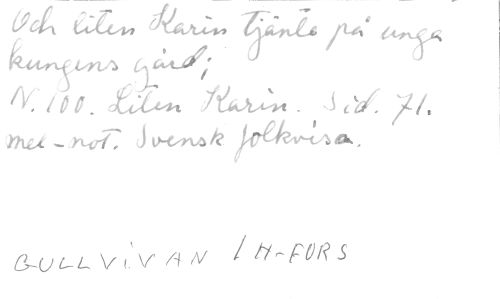 Och liten Karin tjänte på unga
kungens gård;
N. 100. Liten Karin. Sid. 71.
mel-not. Svensk folkvisa.
GULLVIVAN / H-FORS